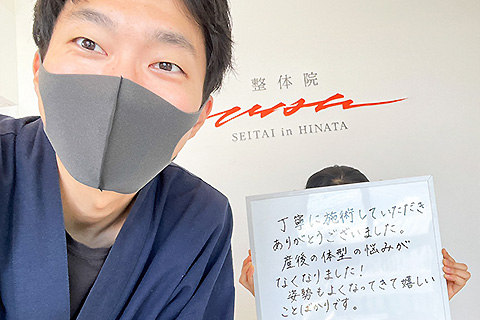 整体院
SEITAI in HINATA
丁寧に施術していただき
ありがとうございました。
産後の体型の悩みが
なくなりました！
姿勢もよくなってきて嬉しい
ことばかりです。